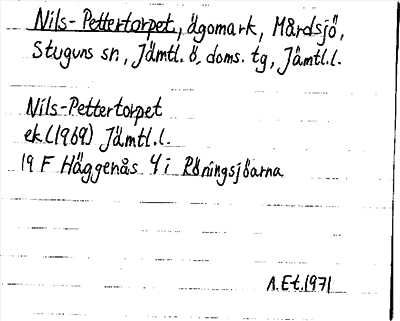 Nils-Pettertorpet, ägomark, Mårdsjö,
Stuguns sn, Jämtl. ö. doms. tg, Jämtl.l.
Nils-Pettertorpet
ek.(1969) Jämtl.l.
19 F Häggenås 4 i Röningsjöarna
A.Et.1971